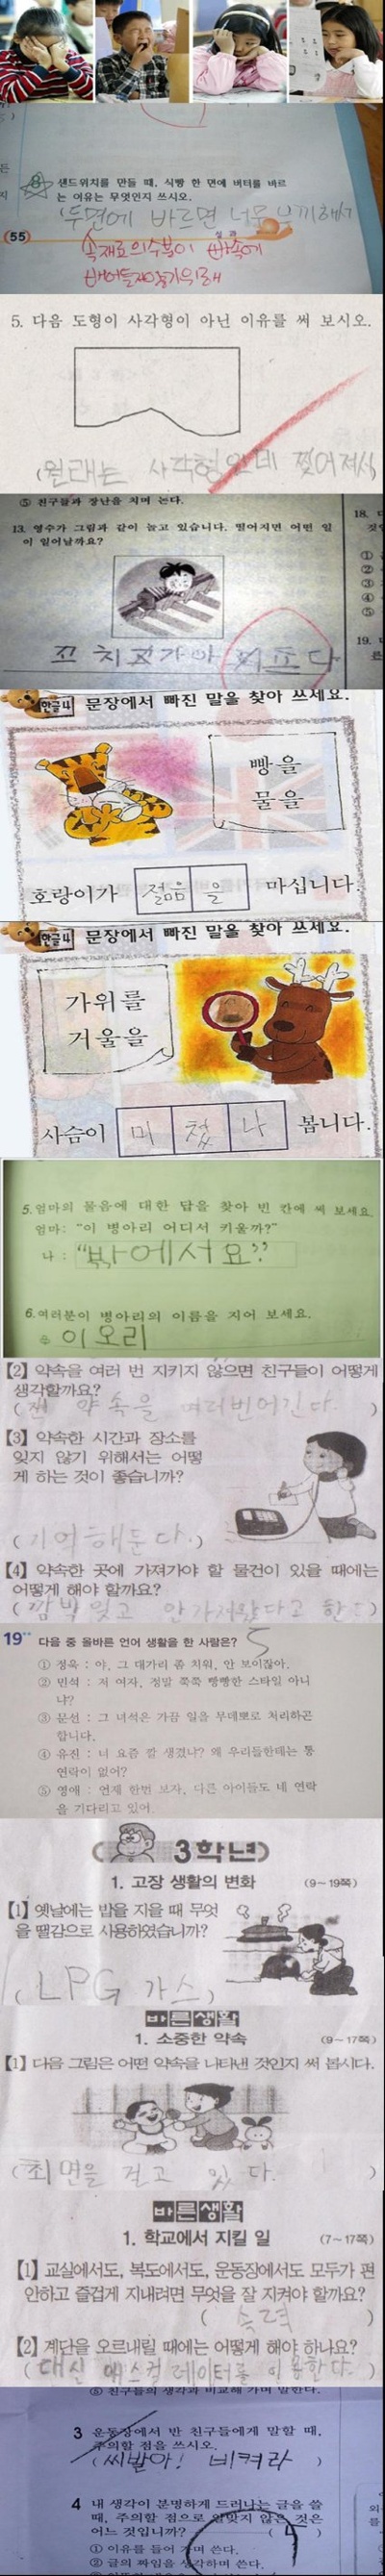 8 샌드위치를 만들 때, 식빵 한 면에 버터를 바르
는 이유는 무엇인지 쓰시오.
(두면에 바르면 너무 느끼해서
(55)
실과
속재료의수분이 빵속에
배어들지않게하기위해
5. 다음 도형이 사각형이 아닌 이유를 써 보시오.
(원래는 사각형인데 찢어져서)
⑤ 친구들과 장난을 치며 논다.
13. 영수가 그림과 같이 놀고 있습니다. 떨어지면 어떤 일
이 일어날까요?
18.
①
②
③
④
⑤
19.
한글나 문장에서 빠진 말을 찾아 쓰세요.
빵을
물을
호랑이가 젊음 을 마십니다.
한글나 문장에서 빠진 말을 찾아 쓰세요.
가위를
거울을
사슴이 미 쳤 나 봅니다.
5. 엄마의 물음에 대한 답을 찾아 빈 칸에 써 보세요.
엄마: "이 병아리 어디서 키울까?"
나 : "밖에서요?"
6. 여러분이 병아리의 이름을 지어 보세요.
이오리
【2】 약속을 여러 번 지키지 않으면 친구들이 어떻게
생각할까요?
(쟨 약속을 여러번어긴다. )
【3】 약속한 시간과 장소를
잊지 않기 위해서는 어떻
게 하는 것이 좋습니까?
(기억해둔다.)
【4】 약속한 곳에 가져가야 할 물건이 있을 때에는
어떻게 해야 할까요?
(깜박 잊고 안가져왔다고 한다)
19 다음 중 올바른 언어 생활을 한 사람은? 5
① 정욱 : 야, 그 대가리 좀 치워, 안 보이잖아.
② 민석 : 저 여자, 정말 쭉쭉 빵빵한 스타일 아니
냐?
③ 문선 : 그 녀석은 가끔 일을 무데뽀로 처리하곤
합니다.
④ 유진 : 너 요즘 깔 생겼냐? 왜 우리들한테는 통
연락이 없어?
⑤ 영애 : 언제 한번 보자, 다른 아이들도 네 연락
을 기다리고 있어.
3학년
1. 고장 생활의 변화 (9~19쪽)
【1】 옛날에는 밥을 지을 때 무엇
을 땔감으로 사용하였습니까?
(LPG 가스)
바른생활
1. 소중한 약속 (9~17쪽)
【1】 다음 그림은 어떤 약속을 나타낸 것인지 써 봅시다.
(최면을 걸고 있다. )
바른생활
1. 학교에서 지킬 일 (7~17쪽)
【1】 교실에서도, 복도에서도, 운동장에서도 모두가 편
안하고 즐겁게 지내려면 무엇을 잘 지켜야 할까요?
( 속력 )
【2】 계단을 오르내릴 때에는 어떻게 해야 하나요?
(대신 에스컬레이터를 이용한다. )
⑤ 친구들의 생각과 비교해 가며 말한다.
3 운동장에서 반 친구들에게 말할 때,
주의할 점을 쓰시오.
(씨발아! 비켜라 )
4 내 생각이 분명하게 드러나는 글을 쓸
때, 주의할 점으로 알맞지 않은 것은
어느 것입니까? ( 4 )
① 이유를 들어 가며 쓴다.
② 글의 짜임을 생각하며 쓴다.